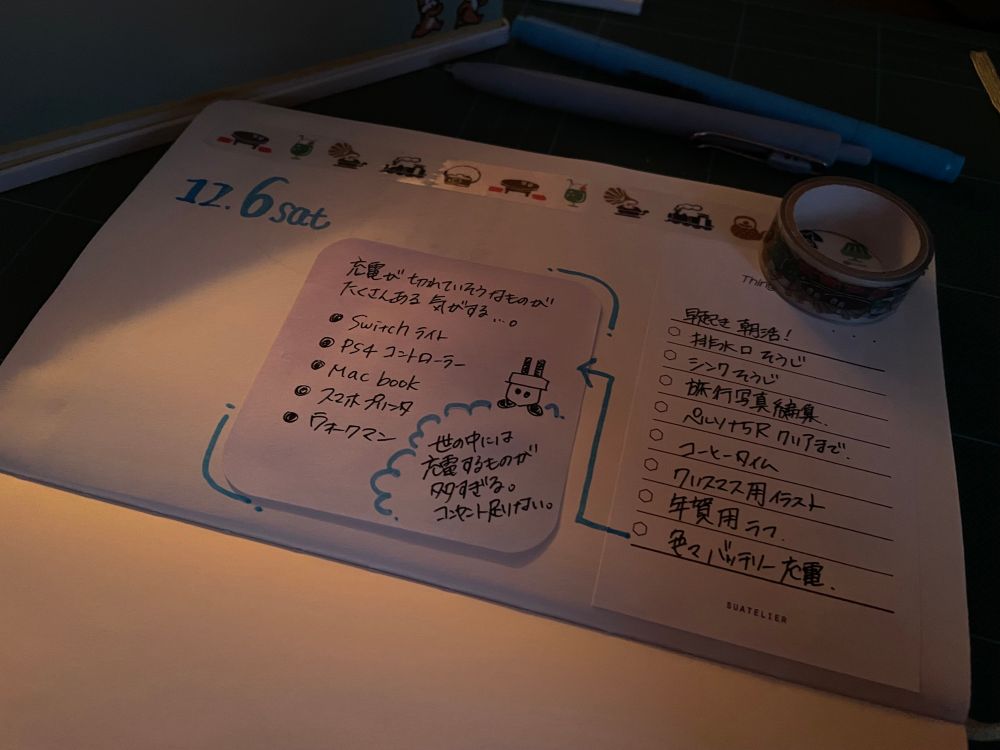 12.6 sat
充電が切れていそうなものが
たくさんある気がする…。
Switch ライト
PS4 コントローラー
Mac book
スマホプリンタ
ウォークマン
世の中には
充電するものが
多すぎる。
コンセント足りない。
早起き 朝活!
排水口そうじ
シンクそうじ
旅行写真編集.
ペルソナ5R クリアまで.
コーヒータイム
クリスマス用イラスト
年賀用ラフ.
色々バッテリー充電.
SUATELIER